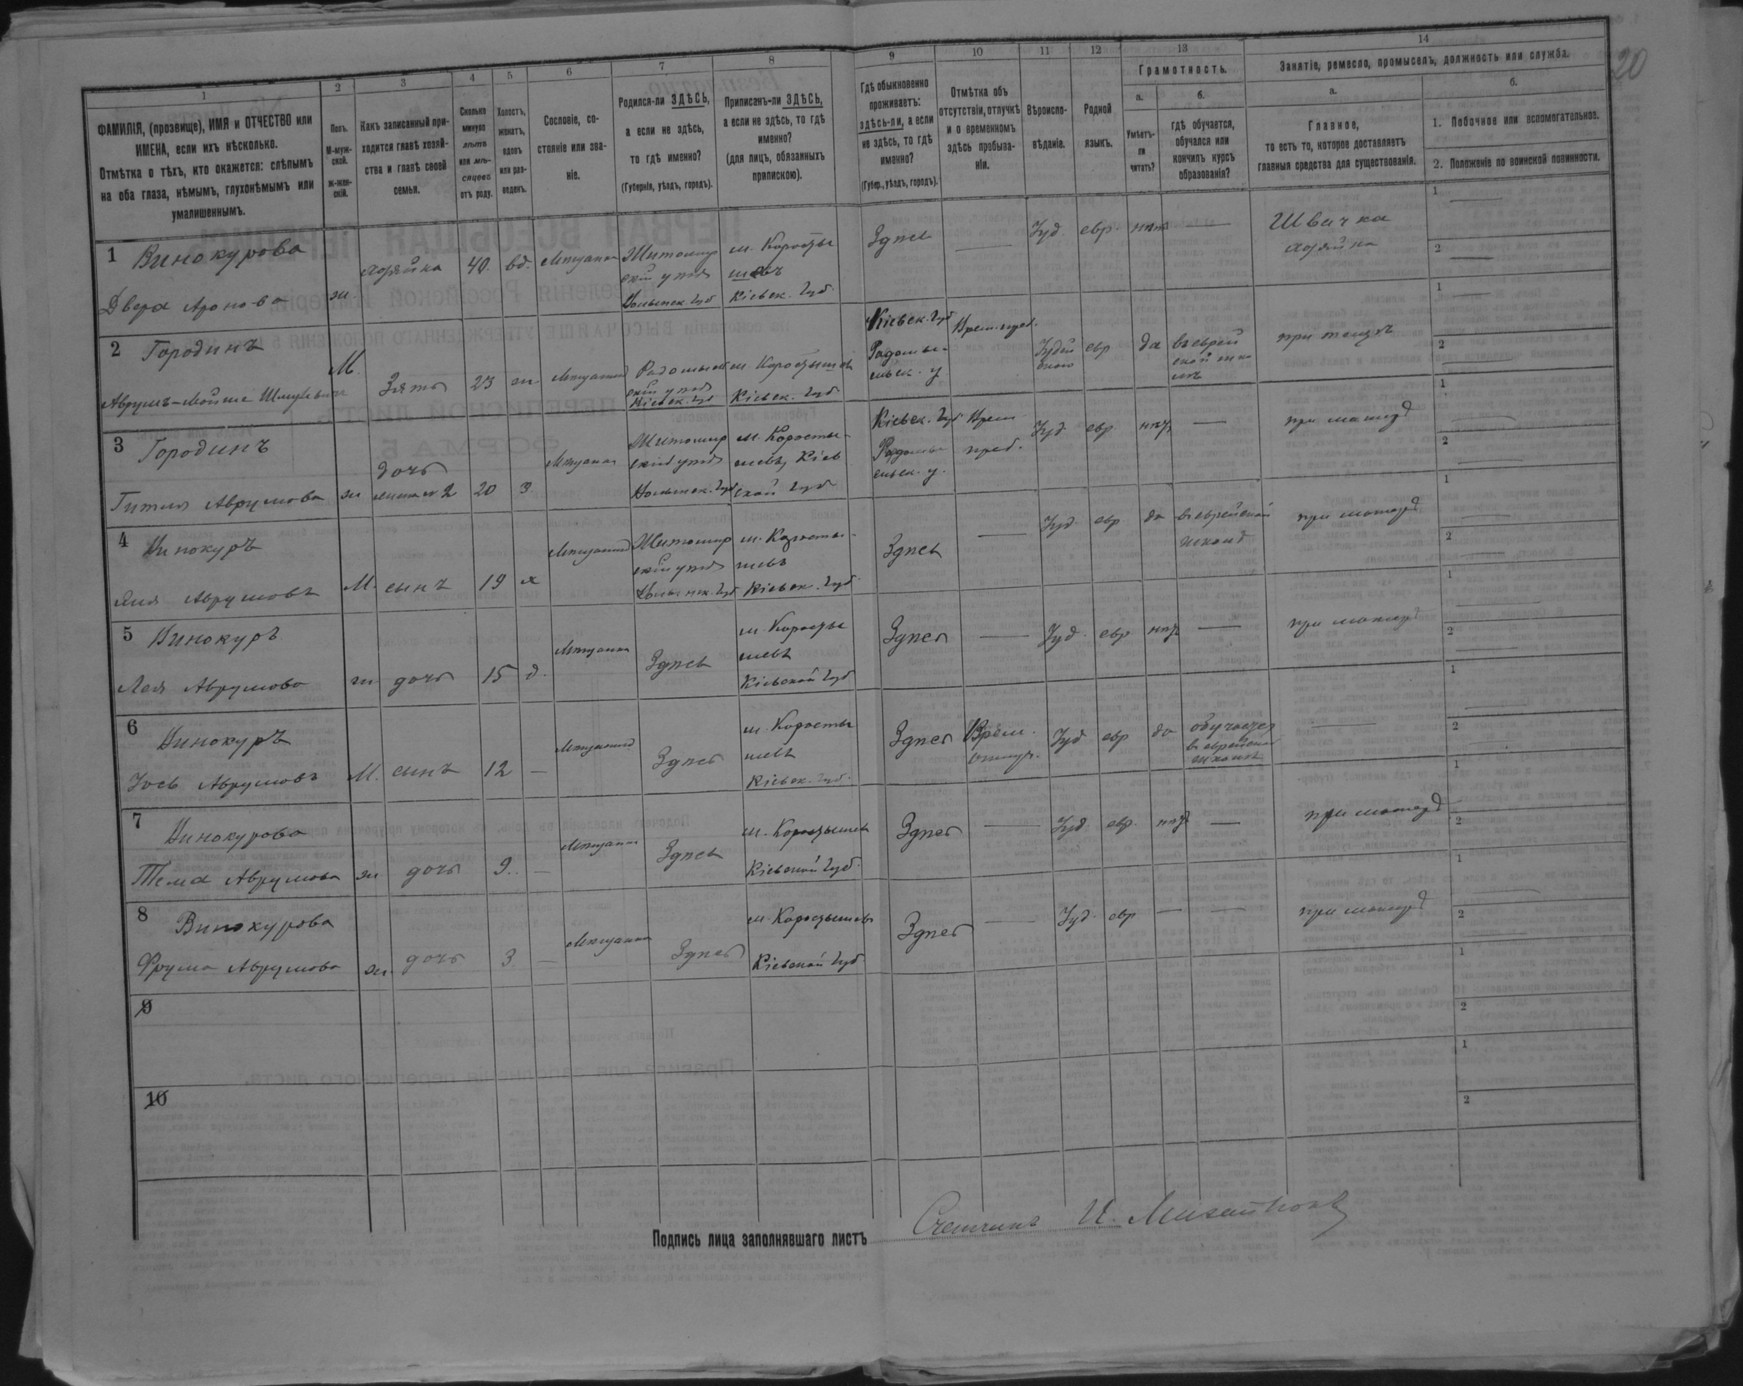 20
1
2
3
4
5
6
7
8
9
10
11
12
13
14
ФАМИЛІЯ, (прозвище), ИМЯ и ОТЧЕСТВО или
ИМЕНА, если ихъ нѣсколько.
Отмѣтка о тѣхъ, кто окажется: слѣпымъ
на оба глаза, нѣмымъ, глухонѣмымъ или
умалишеннымъ.
Полъ.
М-муж-
ской.
Ж-жен-
скій.
Какъ записанный при-
ходится главѣ хозяй-
ства и главѣ своей
семьи.
Сколько
минуло
лѣтъ
или мѣ-
сяцевъ
отъ роду.
Холостъ,
женатъ,
вдовъ
или раз-
веденъ.
Сословіе, со-
стояніе или зва-
ніе.
Родился-ли ЗДѢСЬ,
а если не здѣсь,
то гдѣ именно?
(Губернія, уѣздъ, городъ).
Приписанъ-ли ЗДѢСЬ,
а если не здѣсь, то гдѣ
именно?
(для лицъ, обязанныхъ
припискою).
Гдѣ обыкновенно
проживаетъ:
здѣсь-ли, а если
не здѣсь, то гдѣ
именно?
(Губер., уѣздъ, городъ).
Отмѣтка объ
отсутствіи, отлучкѣ
и о временномъ
здѣсь пребыва-
ніи.
Вѣроиспо-
вѣданіе.
Родной
языкъ.
Грамотность.
а.
Умѣетъ-
ли
читать?
б.
гдѣ обучается,
обучался или
кончилъ курсъ
образованія?
Занятіе, ремесло, промыселъ, должность или служба.
а.
Главное,
то есть то, которое доставляетъ
главныя средства для существованія.
б.
1. Побочное или вспомогательное.
2. Положеніе по воинской повинности.
1 Винокурова
Двера Аронова ж хозяйка 40 вд. Мѣщанка
Житомир
скій уѣздъ
Волынск. Губ
м. Коросты
шевъ
Кіевск. Губ
Здѣсь — Іуд евр. нѣтъ —
Швачка
хозяйка
1 —
2 —
2 Городинъ
Аврумъ-Мойше Шмулевичъ М. Зять 23 ж Мѣщанинъ
Радомысл
скій уѣздъ
Кіевск. Губ
м. Коростышевъ
Кіевск. Губ
Кіевск. Губ
Радомы-
сльск. у.
Врем. преб.
Іудей
скаго
евр да
въ еврей
ской шко
лѣ
при тещѣ
1 —
2 —
3 Городинъ
Гитля Аврумова ж
дочь
жена № 2
20 з Мѣщанка
Житомир
скій уѣздъ
Волынск. Губ
м. Коросты-
шевъ, Кіев
ской Губ
Кіевск. Губ
Радомы-
сльск. у.
Врем
преб.
Іуд евр нѣтъ —
при матери
1 —
2 —
4 Винокуръ
Аврумовъ М. сынъ 19 х Мѣщанинъ
Житомир
скій уѣздъ
Волынск. Губ
м. Коросты-
шевъ
Кіевск. Губ
Здѣсь — Іуд евр да
въ еврейской
школѣ
при матери
1 —
2 —
5 Винокуръ
Лея Аврумова ж дочь 15 д. Мѣщанка
Здѣсь
м. Коросты
шевъ
Кіевской Губ
Здѣсь — Іуд. евр нѣтъ —
при матери
1 —
2 —
6 Винокуръ
Іось Аврумовъ М. сынъ 12 — Мѣщанинъ
Здѣсь
м. Коросты
шевъ
Кіевск. Губ.
Здѣсь
Врем.
отлуч.
Іуд евр да
обучается
въ еврейской
школѣ
—
1 —
2 —
7 Винокурова
Тема Аврумова ж дочь 9. — Мѣщанка
Здѣсь
м. Коростышевъ
Кіевской Губ.
Здѣсь — Іуд. евр. нѣтъ —
при матери
1 —
2 —
8 Винокурова
Фрума Аврумова ж дочь 3 — Мѣщанка
Здѣсь
м. Коростышевъ
Кіевской Губ
Здѣсь — Іуд. евр — —
при матери
1 —
2 —
9
1
2
10
1
2
Подпись лица заполнявшаго листъ
Счетчикъ И.